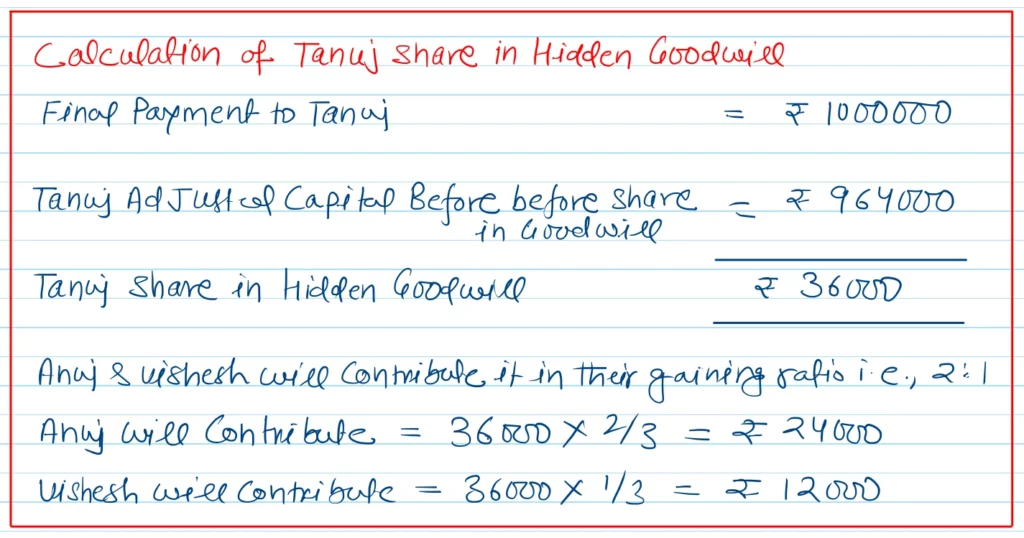 Calculation of Tanuj share in Hidden Goodwill
Final Payment to Tanuj = ₹ 1000000
Tanuj Adjusted Capital Before before share = ₹ 964000
in Goodwill
Tanuj share in Hidden Goodwill ₹ 36000
Anuj & vishesh will contribute it in their gaining ratio i.e., 2:1
Anuj will contribute = 36000 × 2/3 = ₹ 24000
vishesh will contribute = 36000 × 1/3 = ₹ 12000